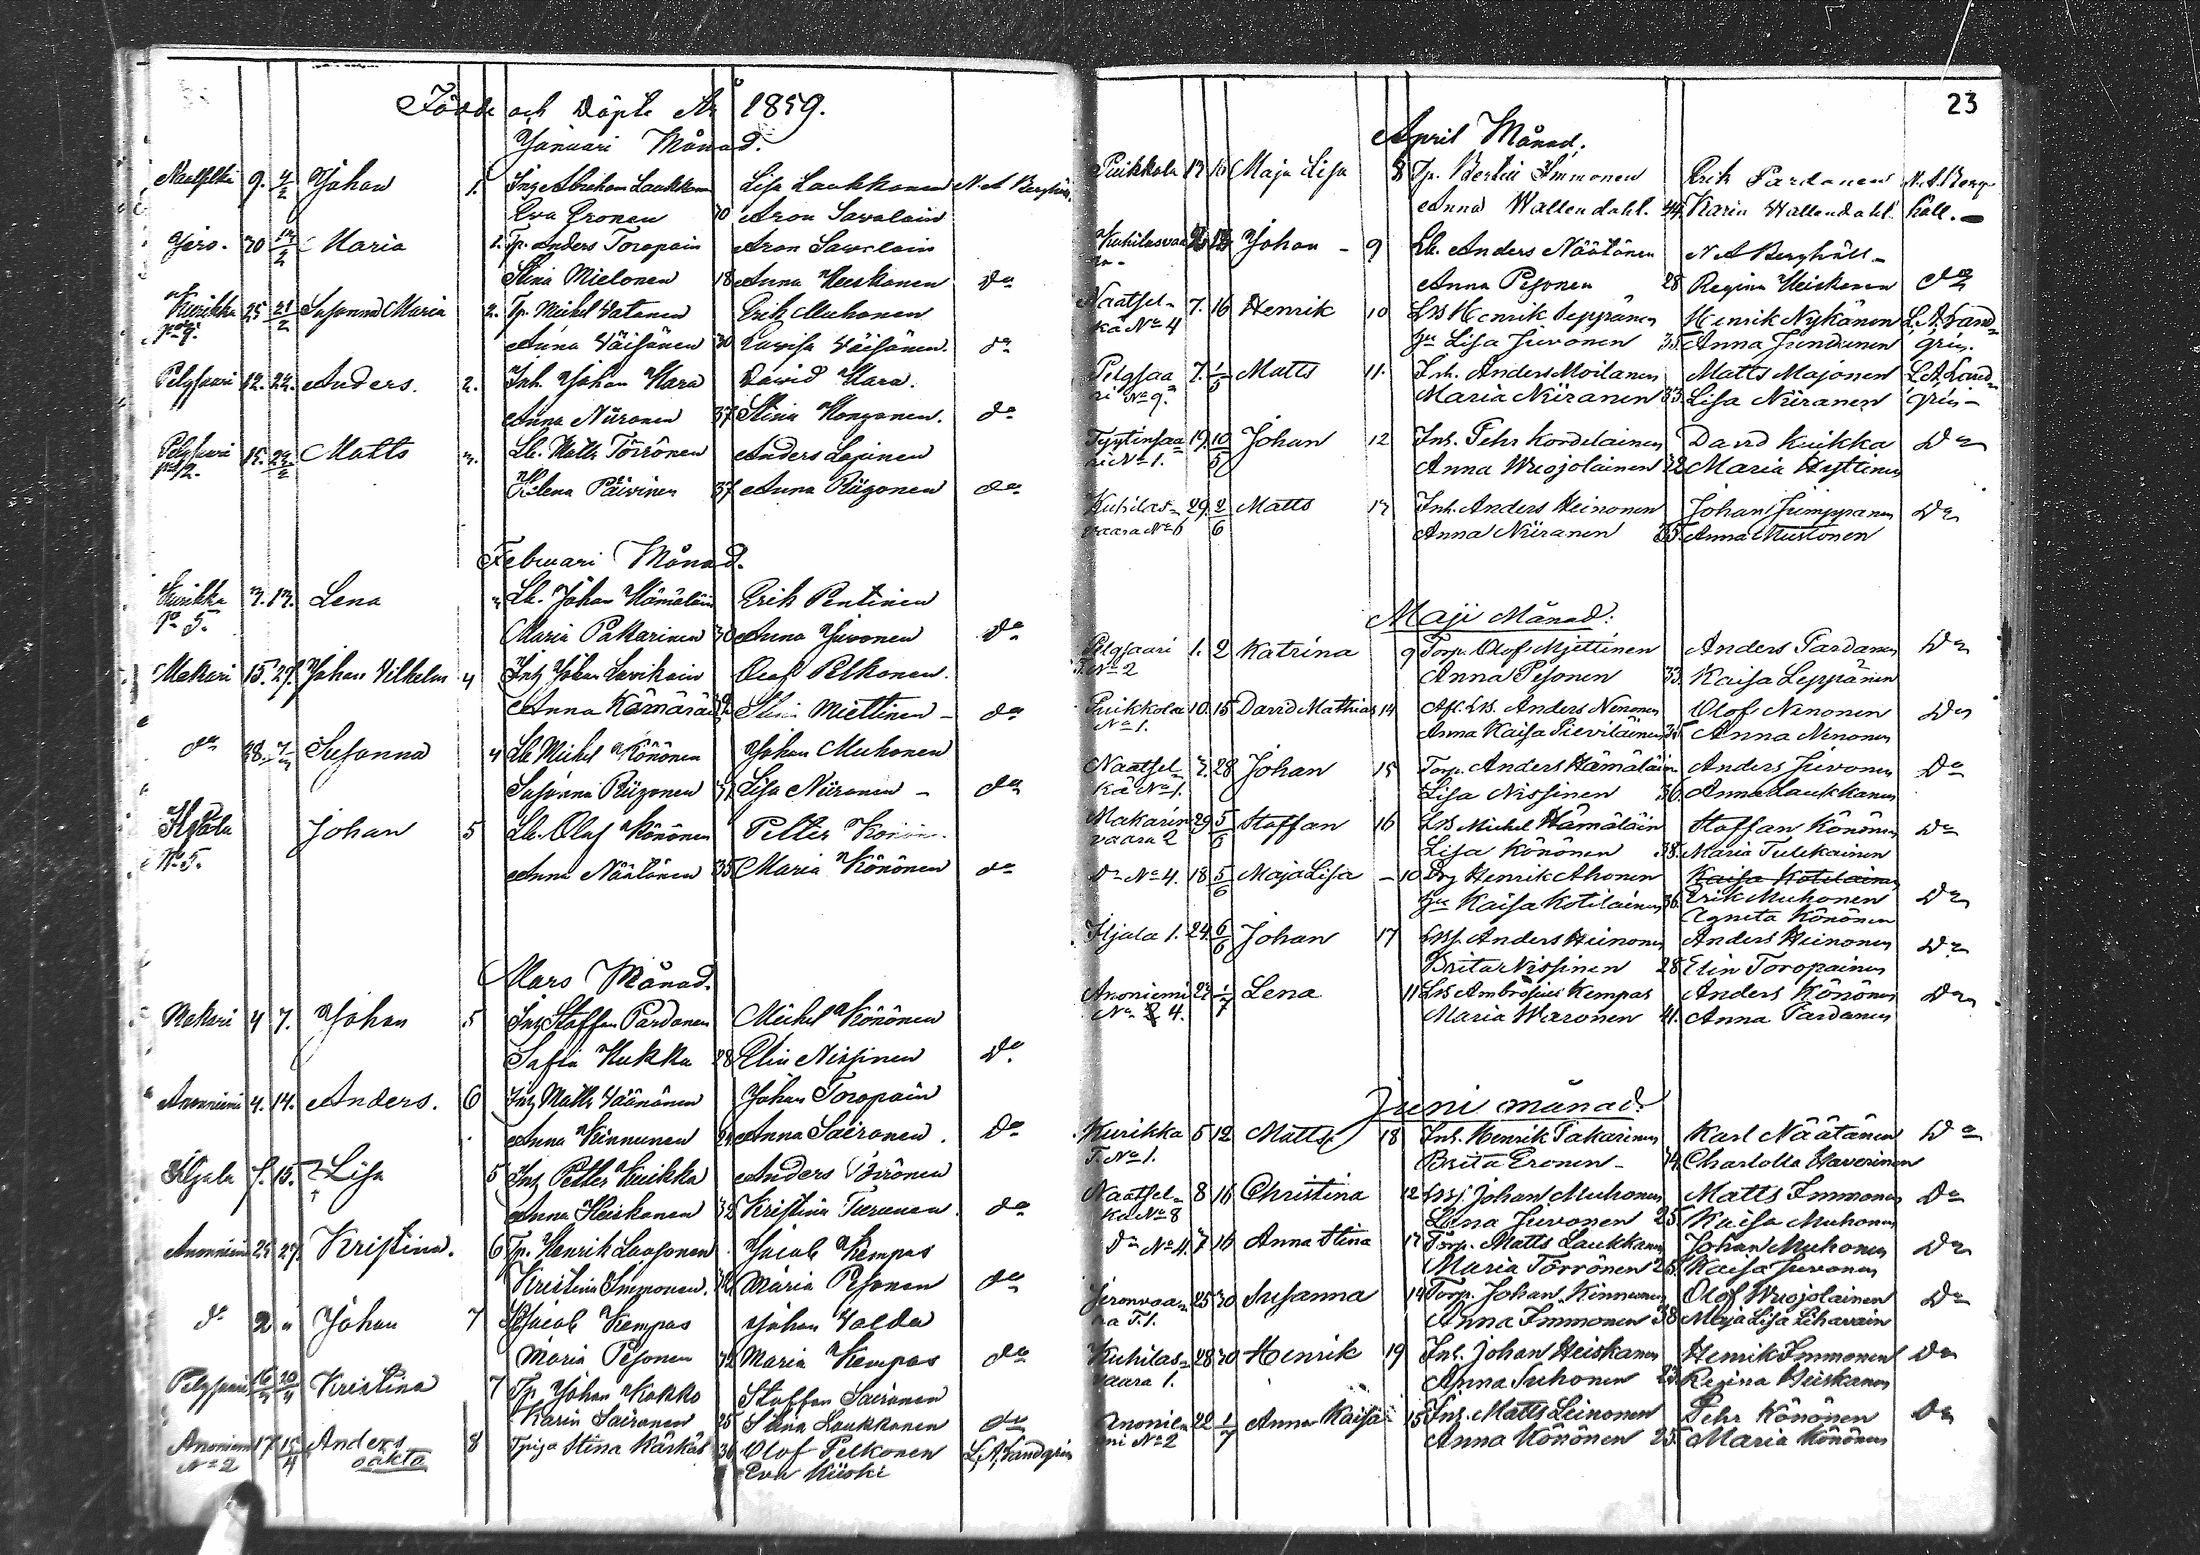 Födde och Döpte År 1859.
Januari Månad.
9. 4/2 Johan 1. Inh Abraham Laukkanen Lisa Laukkanen N. A. Berghäll
Eva Eronen 30 Aron Savolain
Jero. 30 13/2 Maria 1. Tp. Anders Toropain Aron Savolain
Stina Mielonen 18 Anna Heiskanen do
Kurikka 25 21/2 Susanna Maria 2. Tp. Mickel Vatanen Erik Muhonen
No 9. Anna Väisänen 30 Lovisa Väisänen. do
Pelgjaari 12. 22. Anders. 2. Inh. Johan Kara David Kara.
Anna Niiranen 37 Stina Kongonen. do
Pelgjaari 15. Matts 3. Lb. Matts Törrönen Anders Lapinen
No 2. Helena Päivinen 37 Anna Riizonen do
Februari Månad.
Kurikka 3. 13. Lena 3 Lb. Johan Hämäläin Erik Pentinen
No 5. Maria Pakarinen 30 Anna Juvonen do
Makari 15. 27. Johan Vilhelm 4 Inh Johan Savikain Olof Pelkonen.
Anna Kämäräi Stina Miettinen do
do 28. Susanna 4 Lb Mickel Könönen Johan Muhonen
Susanna Riizonen 37 Lisa Niiranen do
Iljala Johan 5 Lb. Olof Könönen Petter Könön.
No 5. Anna Näätänen 35 Maria Könönen do
Mars Månad.
Makari 4 7. Johan 5 Inh Staffan Pardanen Mickel Könönen
Safia Kukka 28 Elin Nissinen do
Anonniemi 4. 14. Anders. 6 Inh Matts Väänänen Johan Toropain
Anna Kinnunen Anna Sairanen. do
Iljala 15. Lisa 5 Inh Petter Kuikka Anders Törrönen
Anna Heiskanen 32 Kristina Turunen. do
Anonniemi 25 27. Kristina. 6 Tp. Henrik Laasonen Jacob Kempas
Kristina Immonen. Maria Pesonen do
do 2 " Johan 7 Jacob Kempas Johan Valda
Maria Pesonen 32 Maria Kempas do
Pelgjaari Kristina 7 Tp. Johan Kokko Staffan Sairanen
Karin Sairanen 25 Stina Laukkanen do
Anoniem 17 15/4 Anders 8 Tpiga Stina Kärkäs 36 Olof Pelkonen L. A. Landgrén
No 2 oäkta Eva Kiiski
23
April Månad.
Puikkola 13 16 Maja Lisa 8 Tp. Bertil Immonen Erik Pardanen N. A. Berg
Anna Wallendahl. 44. Karin Wallendahl. häll.
Kuhilasvaa Johan 9 Lb. Anders Näätänen N A Berghäll
ra Anna Pesonen 28 Regina Heiskanen do
Naatsel- 7. 16 Henrik 10 Lbs Henrik Seppänen Henrik Nykänen L. A. Land-
kä No 4 Lisa Juvonen 35. Anna Jundunen grén.
Pelgjaa 7. 1/5 Matts 11. Inh. Anders Moilanen Matts Majonen L. A. Land-
ri No 9. Maria Niiranen 33. Lisa Niiranen grén
Tyytinsaa 19. 10/5 Johan 12 Inh. Pehr Kordelainen David Kuikka Do
ri No 1. Anna Wuojolainen 32 Maria Hyttinen
Kuhilas- 29. 2/6 Matts 13 Inh. Anders Heinonen Johan Jumppanen Do
vaara No 6 Anna Niiranen 35. Anna Mustonen
Maji Månad:
Pelgjaari 1. 2 Katrina 9 Torp. Olof Mjettinen Anders Pardanen Do
T. No 2 Anna Pesonen 33. Kaisa Leppänen
Puikkola 10. 15 David Mathias 14 Afl. Lbs. Anders Nenonen Olof Nenonen Do
No 1. Anna Kaisa Pieviläinen 35 Anna Nenonen
Naatsel- 3. 28 Johan 15 Torp. Anders Hämäläinen Anders Juvonen Do
kä No 1. Lisa Nissinen 36. Anna Laukkanen
Makarin 29 5/6 Staffan 16 Lbs Michel Hämäläin Staffan Könönen Do
vaara 2 Lisa Könönen 38. Maria Tulikainen
Do No 4. 18 5/6 Maja Lisa 10 Henrik Ahonen Kaisa Kotilainen
Kaisa Kotilainen 36. Erik Muhonen Do
Agneta Könönen
Iljala 1. 24. 6/6 Johan 17 Anders Heinonen Anders Heinonen Do
Brita Nissinen 28 Elin Toropainen
Anoniemi 22 1/7 Lena 11 Lbs Ambrosius Kempas Anders Könönen Do
No 4. Maria Waronen 41. Anna Pardanen
Juni månad.
Kurikka 5 12 Matts 18 Inh. Henrik Pakarinen Karl Näätänen Do
T. No 1. Brita Eronen Charlotta Haverinen
Naatsel- 8 16 Christina 12 Johan Muhonen Matts Immonen Do
kä No 8 Lena Juvonen 25 Kaisa Muhonen
Do No 4. 7 16 Anna Stina 13 Torp. Matts Laukkanen Johan Muhonen Do
Maria Törrönen 25. Kaisa Juvonen
Jeronvaa- 25 30 Susanna 14 Torp. Johan Kinnunen Olof Wuojolainen Do
ra T. 1. Anna Immonen 38 Maja Lisa Lihavain
Kuhilas- 28 30 Henrik 19 Inh. Johan Heiskanen Henrik Immonen Do
vaara 1. Anna Suhonen 23 Regina Heiskanen
Anonie- 22 1/7 Anna Kaisa 15 Inh. Matts Leinonen Pehr Könönen Do
mi No 2 Anna Könönen 25. Maria Könönen